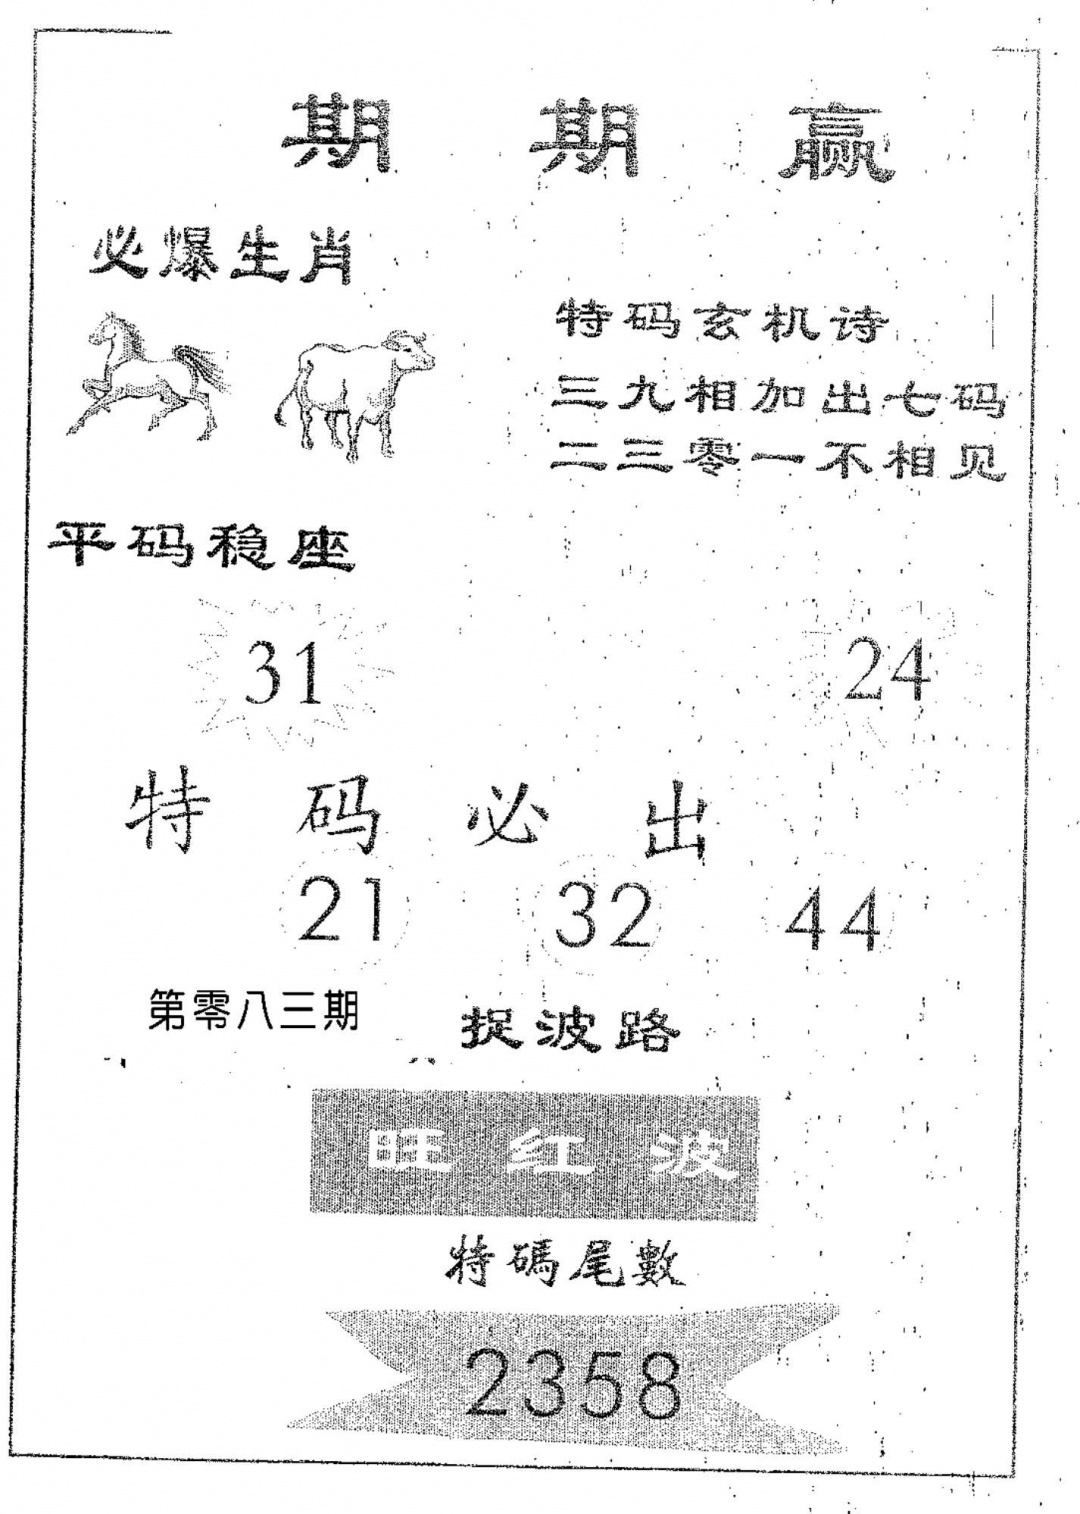 期期赢
必爆生肖
特码玄机诗
三九相加出七码
二三零一不相见
平码稳座
31
24
特码必出
21
32
44
第零八三期
捉波路
旺红波
特碼尾數
2358